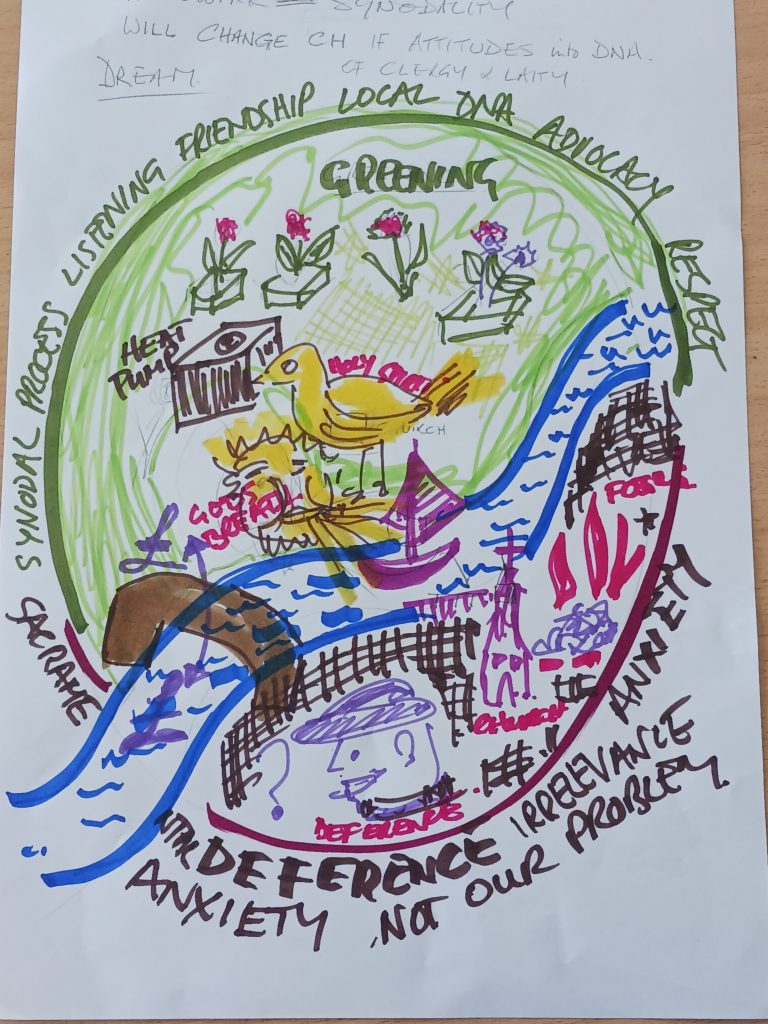 SYNODALITY
WILL CHANGE CH IF ATTITUDES into DNA.
OF CLERGY & LAITY
DREAM.
SYNODAL PROCESS LISTENING FRIENDSHIP LOCAL DNA ADVOCACY RESPECT
GREENING
HEAT
PUMP
HOLY
GOD'S
BREATH
£
FOSSIL
CHURCH
?
?
DEFERENCE
ANXIETY
DEFERENCE IRRELEVANCE
ANXIETY NOT OUR PROBLEM.